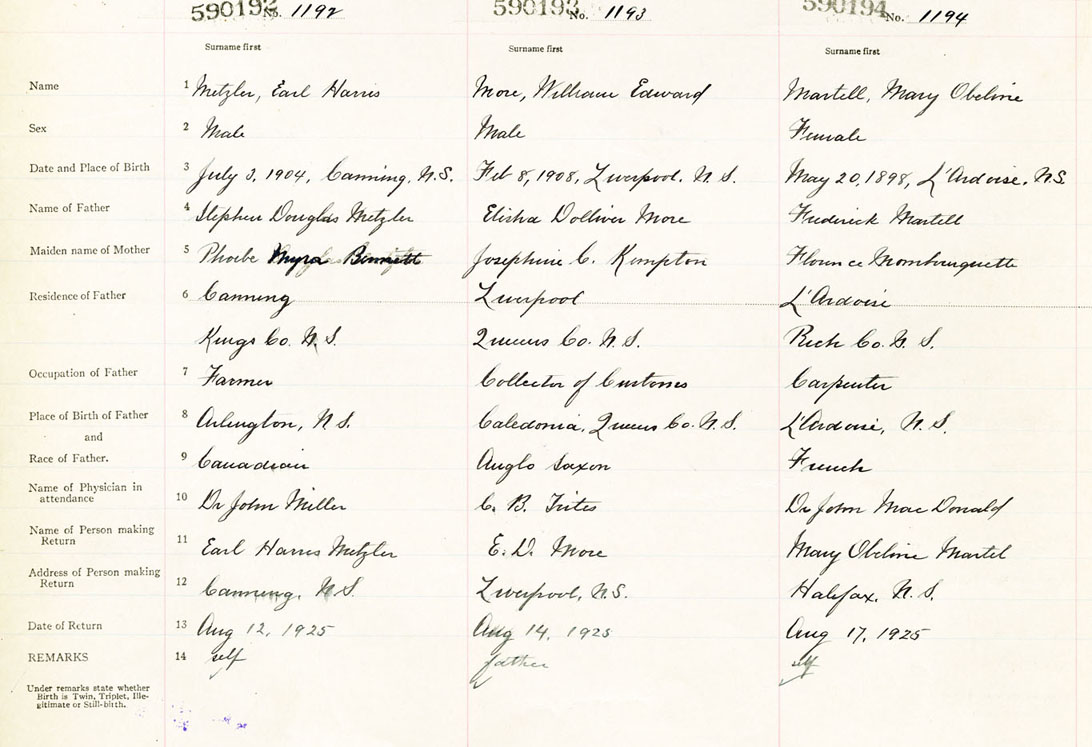 590192 No. 1192 590193 No. 1193 590194 No. 1194
Surname first Surname first Surname first
Name 1 Metzler, Earl Harris More, William Edward Martell, Mary Obeline
Sex 2 Male Male Female
Date and Place of Birth 3 July 3, 1904, Canning, N.S. Feb 8, 1908, Liverpool. N. S. May 20, 1898, L'Ardoise, N.S
Name of Father 4 Stephen Douglas Metzler Elisha Dolliver More Frederick Martell
Maiden name of Mother 5 Phoebe Myra Bennett Josephine C. Kempton Florence Mombourquette
Residence of Father 6 Canning Liverpool L'Ardoise
Kings Co. N. S. Queens Co. N. S. Rich Co. N. S.
Occupation of Father 7 Farmer Collector of Customs Carpenter
Place of Birth of Father 8 Arlington, N S. Caledonia, Queens Co. N.S. L'Ardoise, N. S.
and
Race of Father. 9 Canadian Anglo Saxon French
Name of Physician in
attendance 10 Dr John Miller C. B. Trites Dr John Mac Donald
Name of Person making
Return 11 Earl Harris Metzler E. D. More Mary Obeline Martel
Address of Person making
Return 12 Canning, N.S. Liverpool, N.S. Halifax. N. S.
Date of Return 13 Aug 12, 1925 Aug 14, 1925 Aug 17, 1925
REMARKS 14 self father self
Under remarks state whether
Birth is Twin, Triplet, Ille-
gitimate or Still-birth.